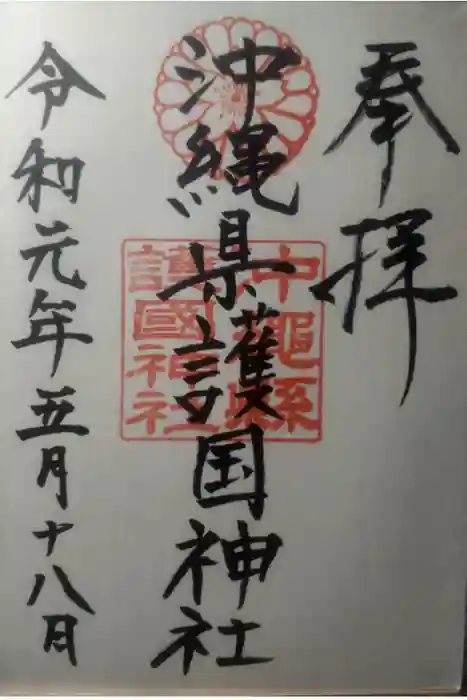 奉拝
沖縄県護国神社
沖繩縣
護國神社
令和元年五月十八日